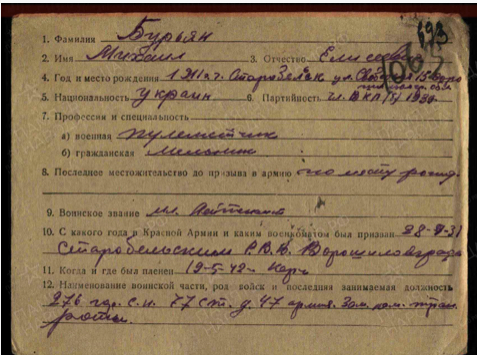 193
1. Фамилия Бурьян
2. Имя Михаил 3. Отчество Елисеевич
4. Год и место рождения 1911 г. Старобельск ул.
5. Национальность украин 6. Партийность чл. ВКП/б/ 193
7. Профессия и специальность
а) военная пулеметчик
б) гражданская мельник
8. Последнее местожительство до призыва в армию по месту рожд.
9. Воинское звание мл. лейтенант
10. С какого года в Красной Армии и каким военкоматом был призван
Старобельским Р.В.К. Ворошиловград
11. Когда и где был пленен 19-5-42 Керчь
12. Наименование воинской части, род войск и последняя занимаемая должность
276 гор. с.п. 77 с. д. 47 армия. Зам. ком.
роты.